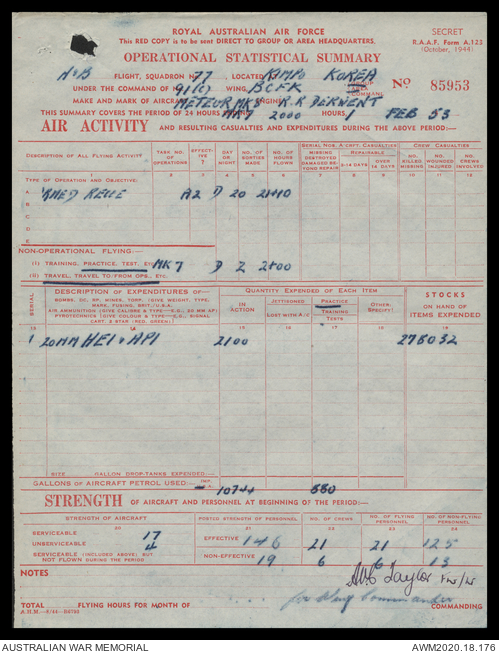 ROYAL AUSTRALIAN AIR FORCE
This RED COPY is to be sent DIRECT TO GROUP OR AREA HEADQUARTERS.
SECRET
R.A.A.F. Form A.123
(October, 1944)
OPERATIONAL STATISTICAL SUMMARY
FLIGHT, SQUADRON No 77 LOCATED KIMPO KOREA
UNDER THE COMMAND OF No 91(C) WING, BCFK
GROUP
AREA
COMMAND
No 85953
MAKE AND MARK OF AIRCRAFT METEOR MK8 ENGINE R.R DERWENT
THIS SUMMARY COVERS THE PERIOD OF 24 HOURS ENDING 2000 HOURS, 1 FEB 53
AIR ACTIVITY AND RESULTING CASUALTIES AND EXPENDITURES DURING THE ABOVE PERIOD:—
DESCRIPTION OF ALL FLYING ACTIVITY
TASK NO. OF OPERATIONS
EFFECTIVE ?
DAY OR NIGHT
NO. OF SORTIES MADE
NO. OF HOURS FLOWN
SERIAL NOS. A-CRFT. CASUALTIES
MISSING DESTROYED DAMAGED BEYOND REPAIR
REPAIRABLE
OVER 14 DAYS
CREW CASUALTIES
NO. KILLED MISSING
NO. WOUNDED INJURED
NO. CREWS INVOLVED
TYPE OF OPERATION AND OBJECTIVE:
A
B
C
D
E
A2 D 20
NON-OPERATIONAL FLYING:—
(I) TRAINING, PRACTICE, TEST, ETC MK7 D 2
(II) TRAVEL, TRAVEL TO/FROM OPS., ETC.
SERIAL
DESCRIPTION OF EXPENDITURES OF—
BOMBS, DC, RP, MINES, TORP. (GIVE WEIGHT, TYPE,
MARK, FUZING, BRIT./U.S.A.)
AIR AMMUNITION (GIVE CALIBRE & TYPE—E.G., 20 MM AP)
PYROTECHNICS (GIVE COLOUR & TYPE—E.G., SIGNAL
CART. 2 STAR (RED, GREEN))
QUANTITY EXPENDED OF EACH ITEM
IN ACTION
JETTISONED
LOST WITH A/C
PRACTICE
TRAINING
TESTS
OTHER (SPECIFY)
STOCKS
ON HAND OF ITEMS EXPENDED
1 20MM HEI & API 2100 278032
SIZE GALLON DROP-TANKS EXPENDED:—
GALLONS OF AIRCRAFT PETROL USED:— 10744 880
STRENGTH OF AIRCRAFT AND PERSONNEL AT BEGINNING OF THE PERIOD:—
STRENGTH OF AIRCRAFT
POSTED STRENGTH OF PERSONNEL
NO. OF CREWS
NO. OF FLYING PERSONNEL
NO. OF NON-FLYING PERSONNEL
20 21 22 23 24
SERVICEABLE 17
EFFECTIVE 146 21 21 125
UNSERVICEABLE 4
SERVICEABLE (INCLUDED ABOVE) BUT
NOT FLOWN DURING THE PERIOD
NON-EFFECTIVE 19 6 6 13
NOTES
Taylor
for Wing Commander COMMANDING
TOTAL FLYING HOURS FOR MONTH OF
AUSTRALIAN WAR MEMORIAL
AWM2020.18.176